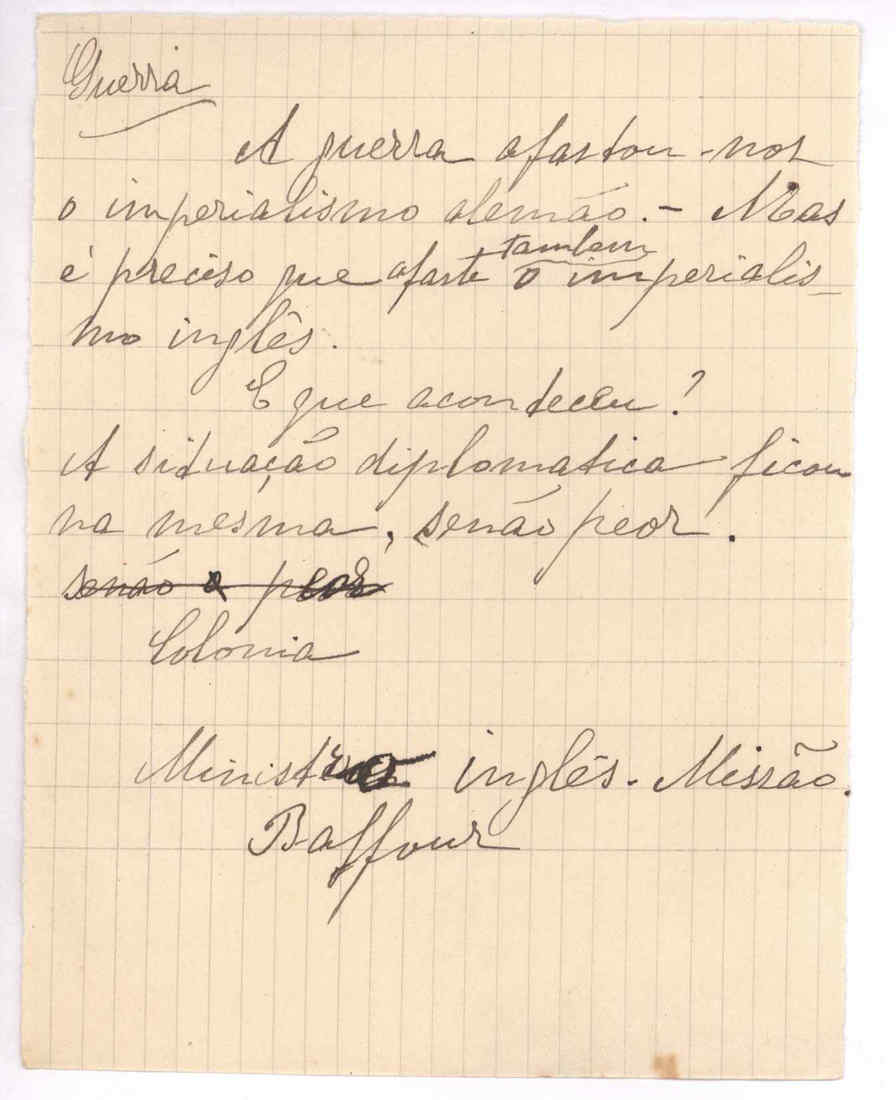 Guerra
A guerra afastou-nos
o imperialismo alemão. - Mas
é preciso que afaste também o imperialis-
mo inglês.
E que aconteceu?
A situação diplomatica ficou
na mesma, senão peor.
senão o peor
Colonia
Ministro inglês - Missão.
Baffour